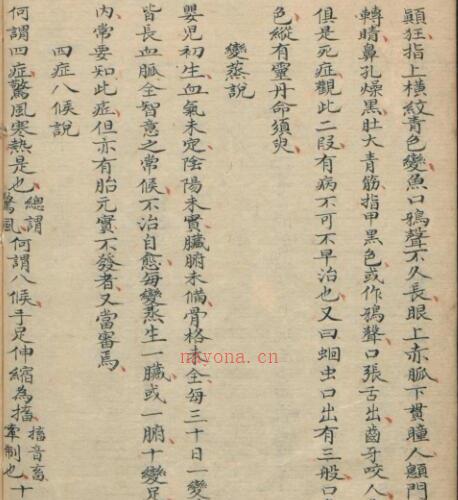 顛狂指上横紋青色變魚口鴉聲不久長眼上赤脈下貫瞳人顖門
轉睛鼻孔燥黑肚大青筋指甲黑色或作鴉聲口張舌出齒牙咬人
俱是死症觀此二段有病不可不早治也又曰蛔虫口出有三般口
色縱有靈丹命須臾
變蒸說
嬰児初生血氣未定陰陽未實臟腑未備骨格未全每三十日一變
皆長血脈全智意之常候不治自愈每變蒸生一臟或一腑十變足
內常要知此症但亦有胎元實不發者又當審焉
四症八候說
何謂四症驚風寒熱是也總謂驚風何謂八候手足伸縮為搐搐音畜牽制也十
nayona.cn